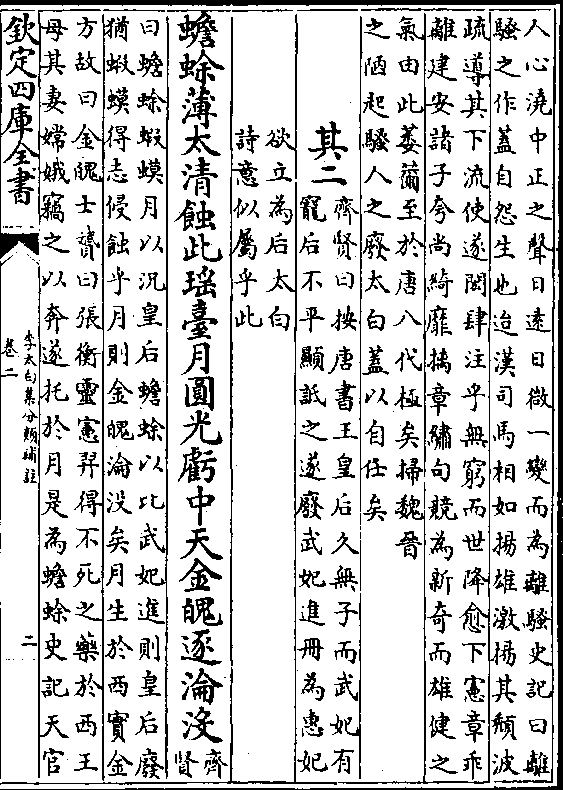 人心澆中正之聲日逺日微一變而為離騷史記曰離
騷之作蓋自怨生也迨漢司馬相如揚雄激揚其頽波
疏導其下流使遂閎肆注乎無窮而世降愈下憲章乖
離建安諸子夸尚綺靡摛章繡句競為新奇而雄健之
氣由此萎薾至於唐八代極矣掃魏晉
之陋起騷人之廢太白蓋以自任矣
其二
齊賢曰按唐書王皇后久無子而武妃有
寵后不平顯詆之遂廢武妃進冊為惠妃
欲立為后太白
詩意似屬乎此
蟾蜍薄太清蝕此瑶臺月圓光虧中天金魄逐淪沒
齊
賢
曰蟾蜍蝦蟆月以况皇后蟾蜍以比武妃進則皇后廢
猶蝦蟆得志侵蝕乎月則金魄淪没矣月生於西實金
方故曰金魄士贇曰張衡靈憲羿得不死之藥於西王
母其妻嫦娥竊之以奔遂托於月是為蟾蜍史記天官
欽定四庫全書
李太白集分類補註
卷二
二